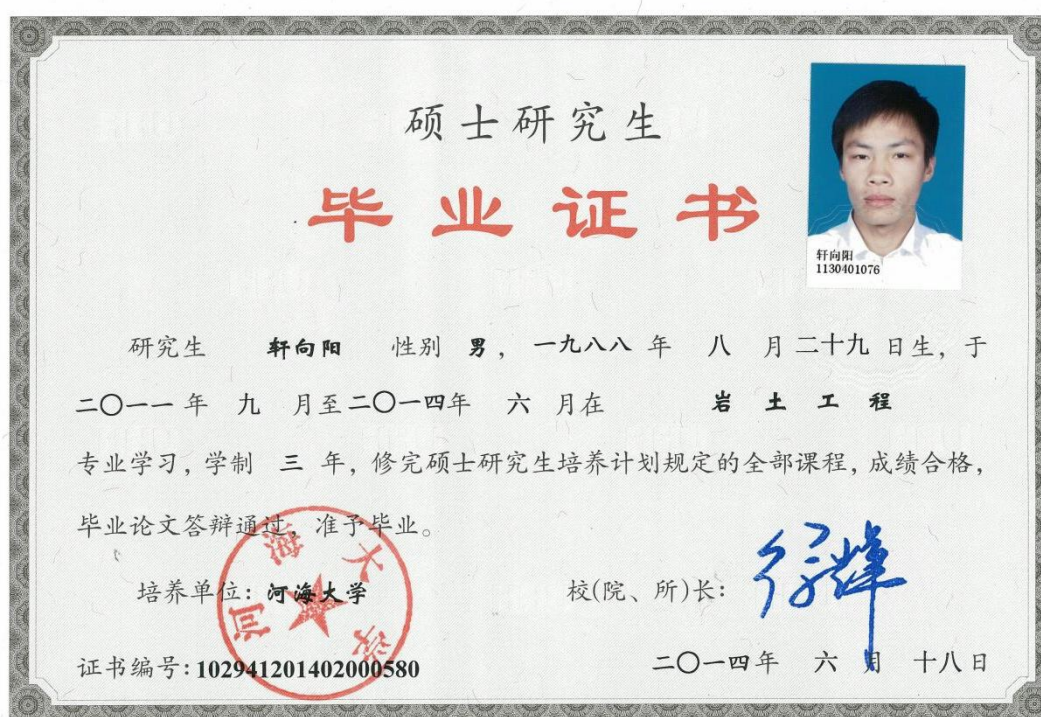 硕士研究生
毕业证书
轩向阳
1130401076
研究生 轩向阳 性别 男，一九八八 年 八 月 二十九 日生，于
二〇一一 年 九 月至 二〇一四年 六 月在 岩土工程
专业学习，学制 三 年，修完硕士研究生培养计划规定的全部课程，成绩合格，
毕业论文答辩通过，准予毕业。
培养单位：河海大学
校(院、所)长：
河海大学
证书编号：102941201402000580
二〇一四年 六 月 十八日